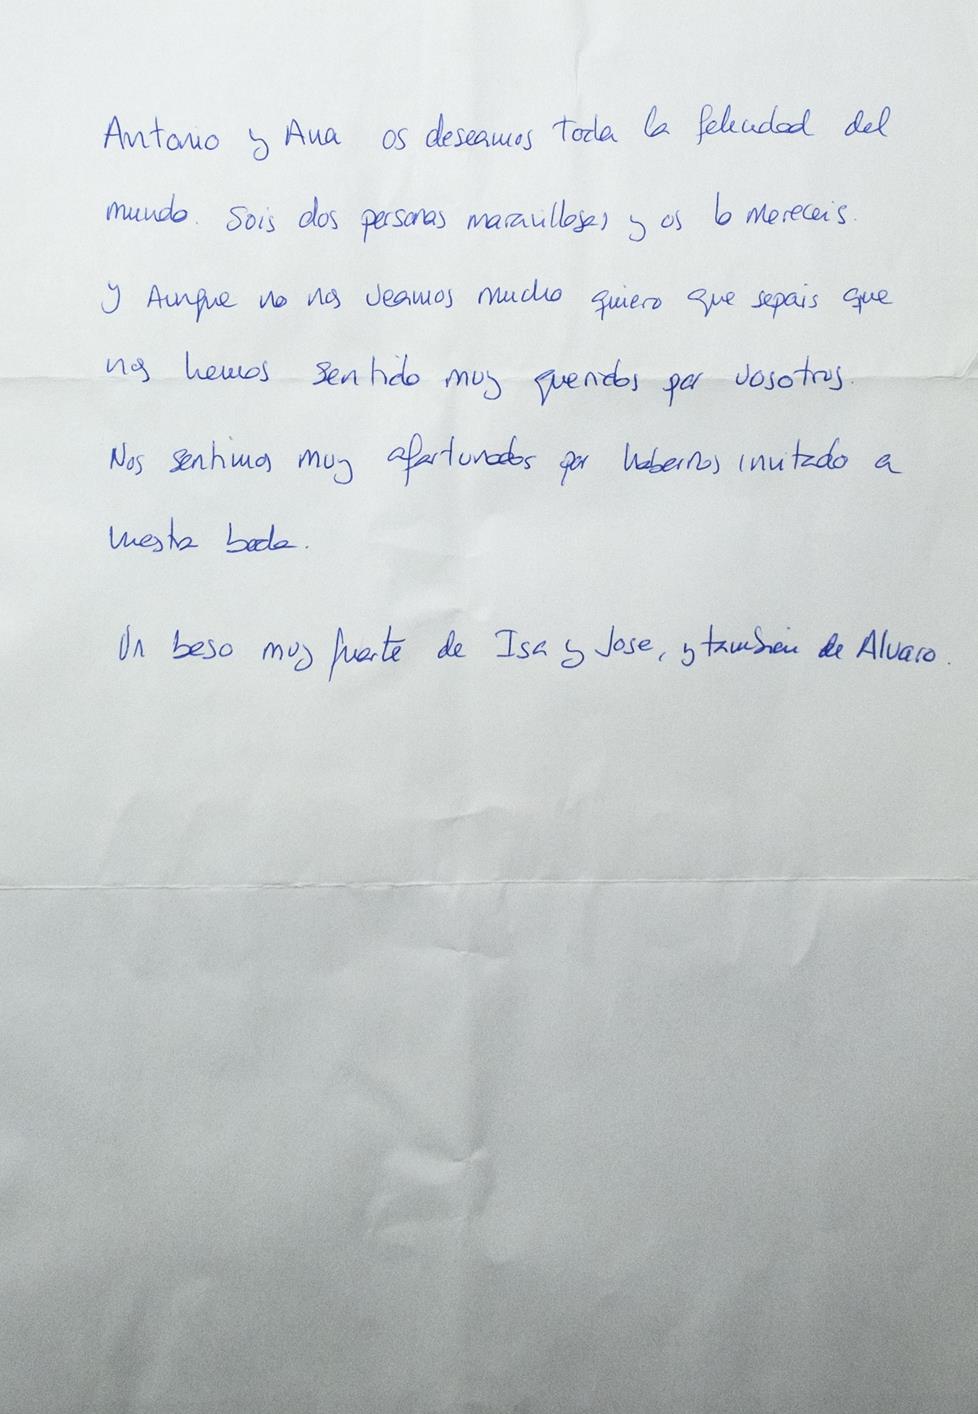 Antonio y Ana os deseamos toda la felicidad del
mundo. Sois dos personas maravillosas y os lo mereceis.
y Aunque no nos veamos mucho quiero que sepais que
nos hemos sentido muy queridos por vosotros.
Nos sentimos muy afortunados por habernos invitado a
vuestra boda.
Un beso muy fuerte de Isa y Jose, y también de Alvaro.